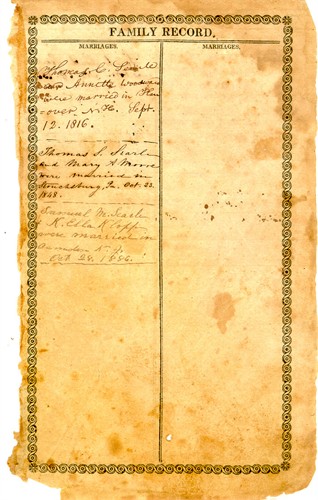 FAMILY RECORD.
MARRIAGES.
MARRIAGES.
Thomas C. Searle
and Annette Woodward
were married in Han
over, N.H. Sept.
12. 1816.
Thomas S. Searle
and Mary A
were married in
Pa. Oct. 23.
1848.
Samuel M. Searle
&
were married in
Camden N.J.
Oct 28. 1886.